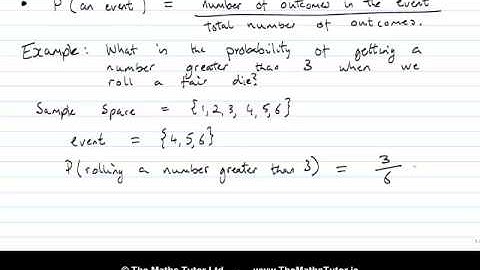 • P(an event) = number of outcomes in the event
total number of outcomes.
Example: What is the probability of getting a
number greater than 3 when we
roll a fair die?
Sample Space = {1,2,3, 4,5,6}
event = {4,5,6}
P(rolling a number greater than 3) = 3/6
© The Maths Tutor Ltd www.TheMathsTutor.ie